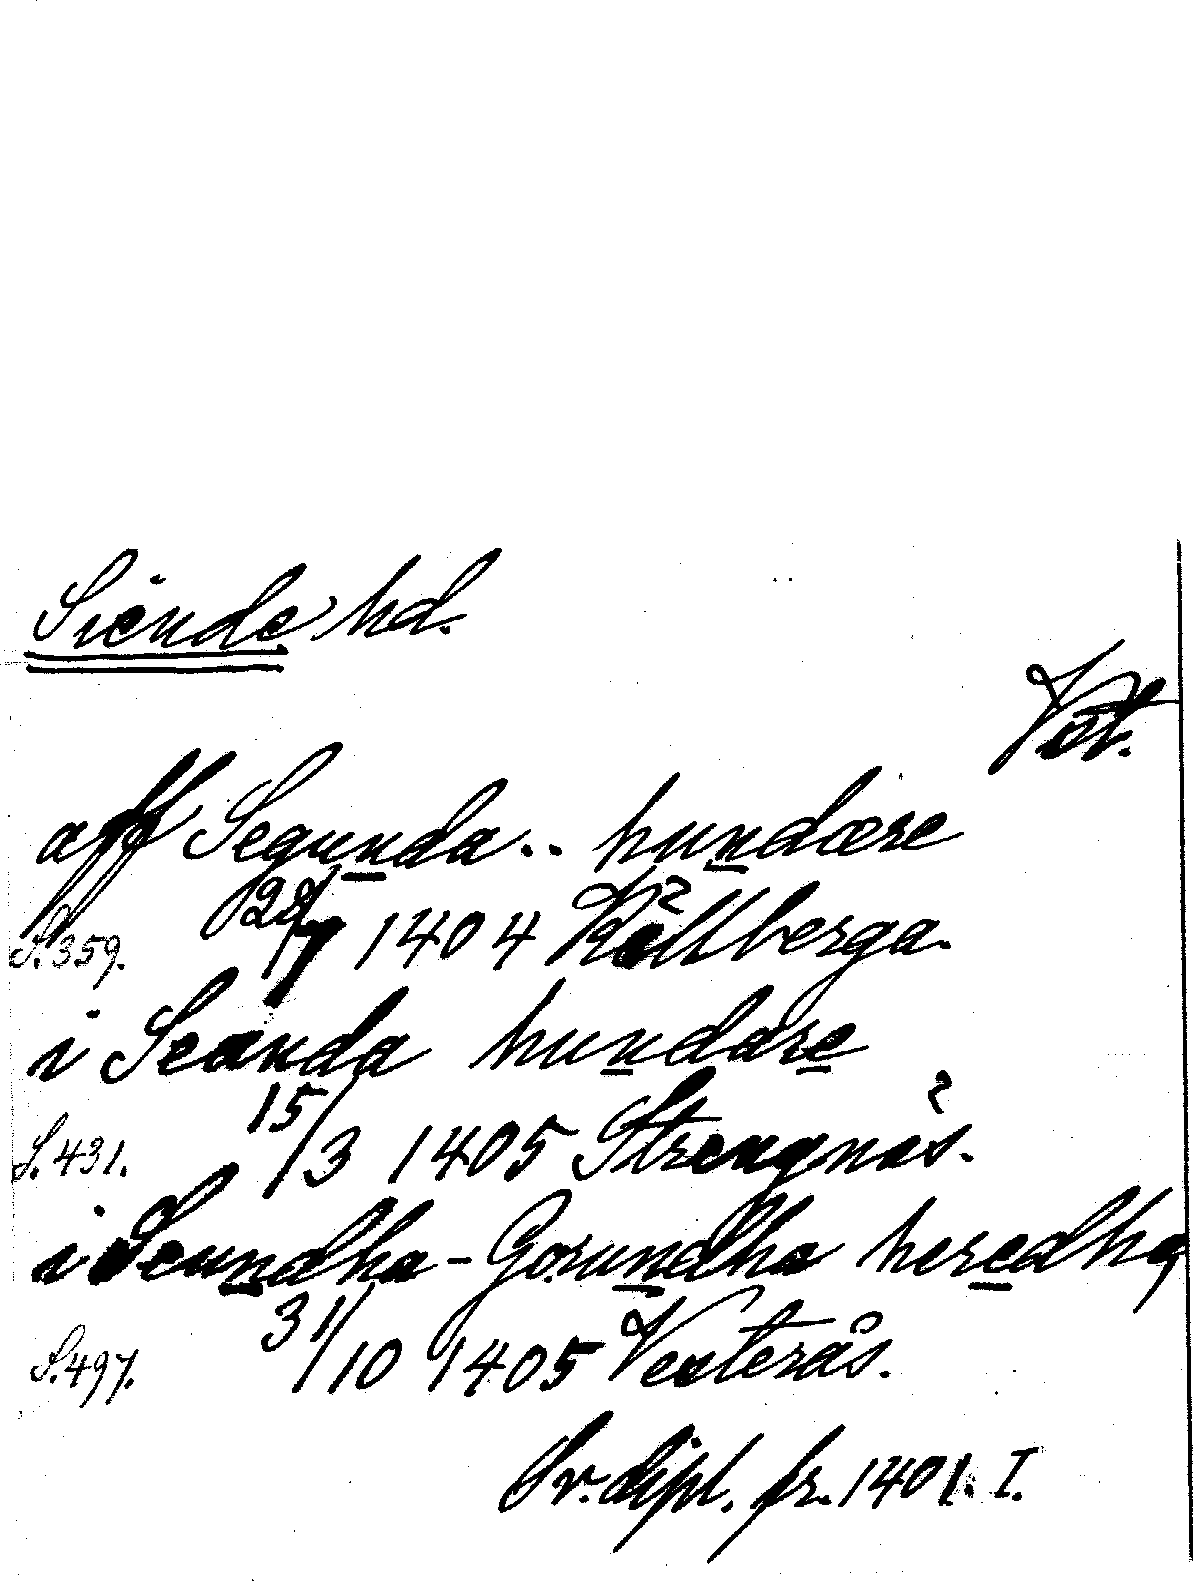 Siende hd.
Vst.
aff Segunda.. hundære
S. 359. 28/7 1404 Källberga.
i Seanda hundære
S. 431. 15/3 1405 Strengnäs.
i Seundha-Gorundha heredhe
S. 497. 31/10 1405 Vesterås.
Sv. dipl. fr. 1401. I.